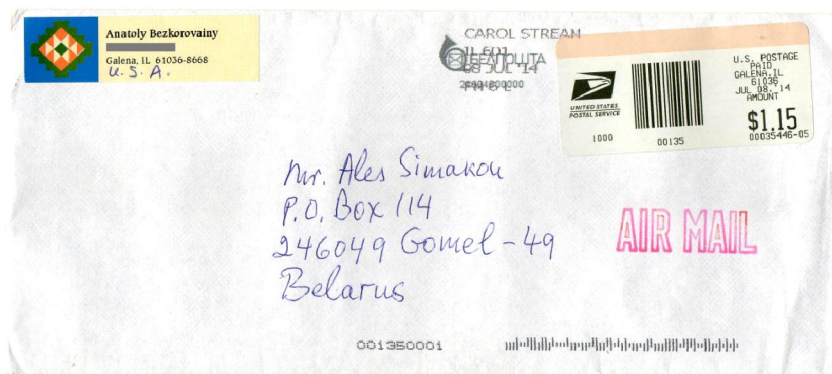 Anatoly Bezkorovainy
Galena, IL 61036-8668
U.S.A.
CAROL STREAM
IL 601
08 JUL '14
UNITED STATES
POSTAL SERVICE
1000
00135
U.S. POSTAGE
PAID
GALENA, IL
61036
JUL 08, 14
AMOUNT
$1.15
00035446-05
Mr. Ales Simakou
P.O. Box 114
246049 Gomel-49
Belarus
AIR MAIL
001350001